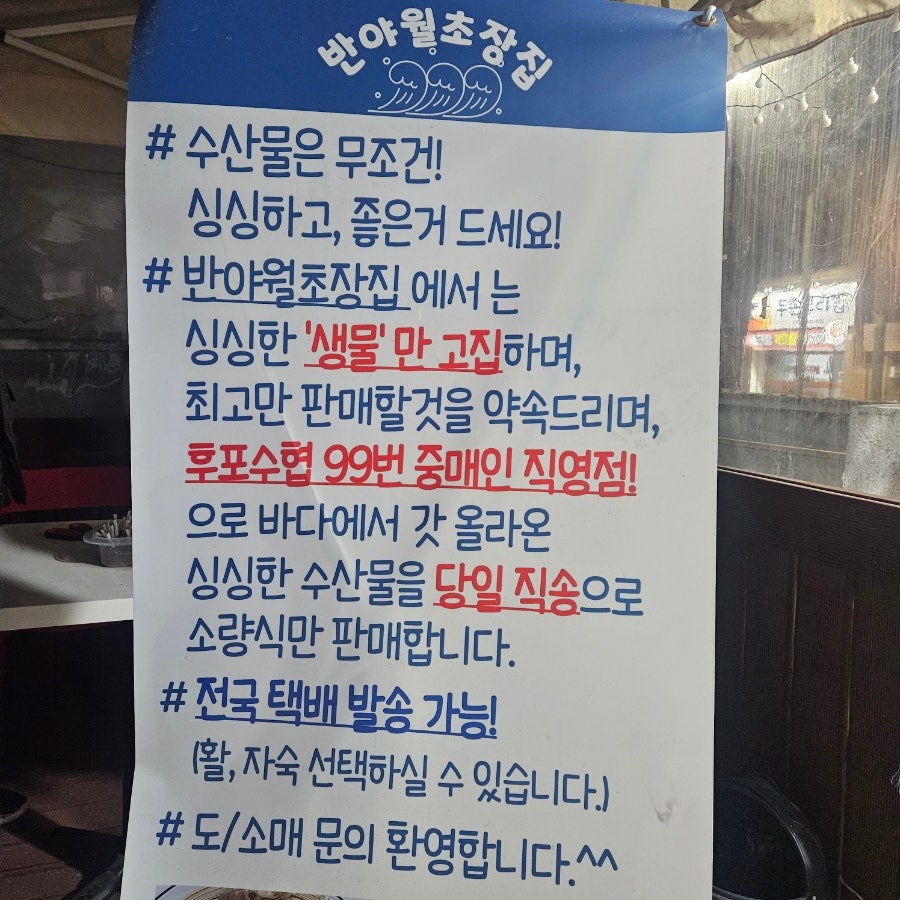 반야월초장집
# 수산물은 무조건!
싱싱하고, 좋은거 드세요!
# 반야월초장집 에서 는
싱싱한 '생물' 만 고집하며,
최고만 판매할것을 약속드리며,
후포수협 99번 중매인 직영점!
으로 바다에서 갓 올라온
싱싱한 수산물을 당일 직송으로
소량식만 판매합니다.
# 전국 택배 발송 가능!
(활, 자숙 선택하실 수 있습니다.)
# 도/소매 문의 환영합니다.^^